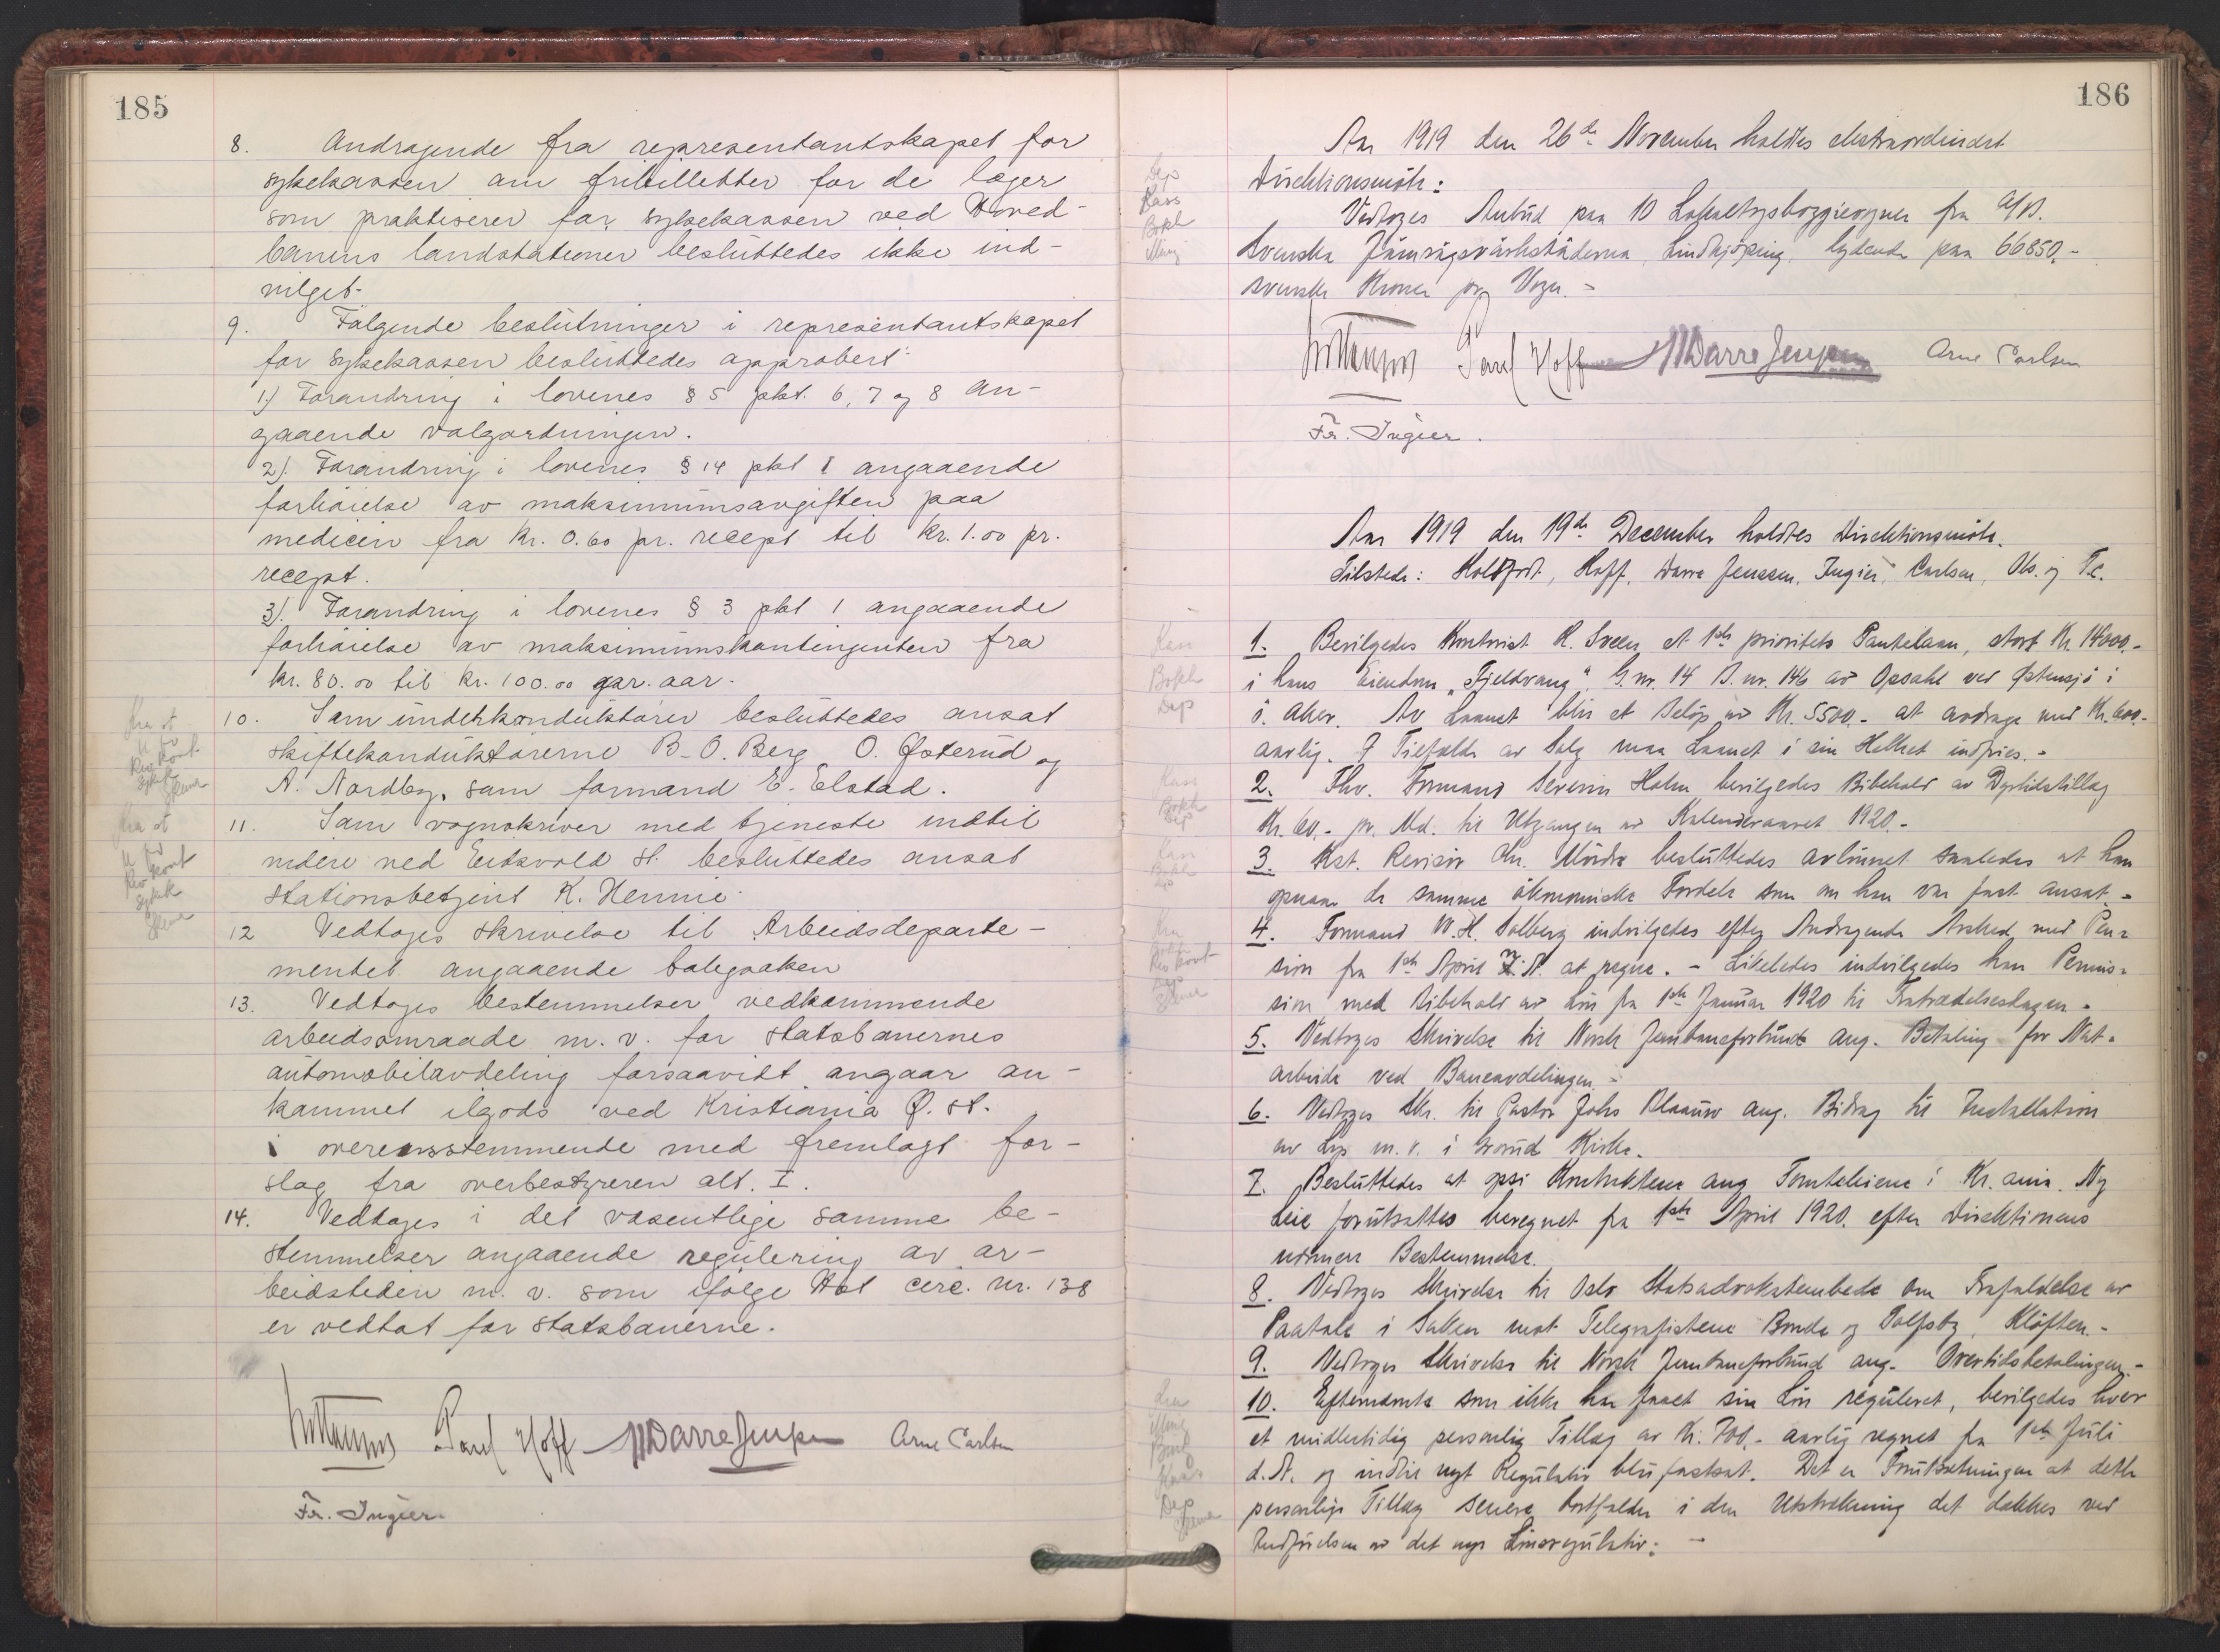 185
8. Andragende fra representantskapet for
sykekassen om fribilletter for de læger
som praktiserer for sykekassen ved Hoved-
banens landstationer besluttedes ikke ind-
vilget.
9. Følgende beslutninger i representantskapet
for sykekassen besluttedes approbert:
1) Forandring i lovenes § 5 pkt. 6, 7 og 8 an-
gaaende valgordningen.
2). Forandring i lovenes § 14 pkt 1 angaaende
forhøielse av maksimumsavgiften paa
medicin fra kr. 0.60 pr. recept til kr. 1.00 pr.
recept.
3). Forandring i lovenes § 3 pkt 1 angaaende
forhøielse av maksimumskontingenten fra
kr. 80.00 til kr. 100.00 pr. aar.
10. Som underkonduktører besluttedes ansat
skiftekonduktørerne B. O. Berg O. Østerud og
A. Nordby, som formand E. Elstad.
11. Som vognskriver med tjeneste indtil
videre ved Eidsvold st. besluttedes ansat
stationsbetjent K. Hennie.
12 Vedtoges skrivelse til Arbeidsdeparte-
mentet angaaende
13. Vedtoges bestemmelser vedkommende
arbeidsomraade m. v. for statsbanernes
automobilavdeling forsaavidt angaar an-
kommet ilgods ved Kristiania Ø. st.
i overensstemmende med fremlagt for-
slag fra overbestyreren alt. I.
14. Vedtoges i det væsentlige samme be-
stemmelser angaaende regulering av ar-
beidstiden m. v. som ifølge Hst circ. nr. 138
er vedtat for statsbanerne.
Paul Hoff M Darre Jenssen Arne Carlsen
Fr. Ingier.
186
Aar 1919 den 26de November holdtes ekstraordinært
Direktionsmøte:
Vedtoges Anbud paa 10 Lokaltogsboggievogner fra A/B.
Svenska Järnvägsverkstäderna, Lindkjöping, lydende paa 66850.-
svenske Kroner pr. Vogn. -
Paul Hoff M Darre Jenssen Arne Carlsen
Fr. Ingier.
Aar 1919 den 19de December holdtes Direktionsmøte.
Tilstede: Holtfodt, Hoff, Darre Jenssen, Ingier, Carlsen, Obs. og Tc.
1. Bevilgedes Kontorist K. Sveen et 1ste prioritets Pantelaan, stort Kr. 14000.-
i hans Eiendom "Fjeldvang", G. nr. 14 B. nr. 146 av Opsahl ved Østensjø i
ø. Aker. Av Laanet blir et Beløp av Kr. 5500.- at avdrage med Kr. 600.-
aarlig. I Tilfælde av Salg maa Laanet i sin Helhet indfries. -
2. Fhv. Formand Severin Holm bevilgedes Bibehold av Dyrtidstillæg
Kr. 60.- pr. Md. til Utgangen av Kalenderaaret 1920. -
3. Kst. Revisor Chr. Mørdre besluttedes avlønnet saaledes at han
opnaar de samme økonomiske Fordele som om han var fast ansat. -
4. Formand W. H. Solberg indvilgedes efter Andragende Avsked med Pen-
sion fra 1ste April n. A. at regne. - Likeledes indvilgedes han Permis-
sion med Bibehold av Løn fra 1ste Januar 1920 til Fratrædelsesdagen. -
5. Vedtoges Skrivelse til Norsk Jernbaneforbund ang. Betaling for Nat-
arbeide ved Baneavdelingen. -
6. Vedtoges Skr. til Pastor Johs Blaauw ang. Bidrag til Installation
av Lys m. v. i Grorud Kirke.
7. Besluttedes at opsi Kontraktene ang Tomteleiene i Kr.ania. Ny
Leie forutsattes beregnet fra 1ste April 1920 efter Direktionens
nærmere Bestemmelse.
8. Vedtoges Skrivelse til Oslo Statsadvokatembede om Frafaldelse av
Paatale i Saken mot Telegrafistene Bonde og Tolfsby, Kløften. -
9. Vedtoges Skrivelse til Norsk Jernbaneforbund ang. Overtidsbetalingen. -
10. Eftermænd som ikke har faaet sin Løn reguleret, bevilgedes hver
et midlertidig personlig Tillæg av Kr. 700.- aarlig regnet fra 1ste Juli
d. A. og indtil nyt Regulativ blir fastsat. Det er Forutsætningen at dette
personlige Tillæg senere bortfalder i den Utstrækning det dækkes ved
Indførelsen av det nye Lønsregulativ. -